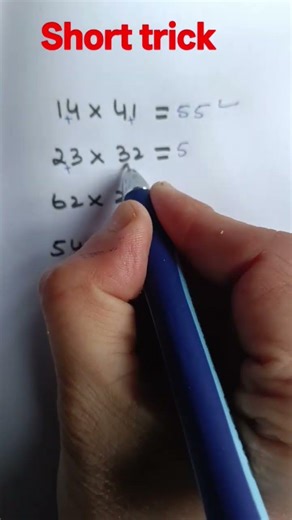 Short trick
14 × 41 = 55
23 × 32 = 5
62 ×
54